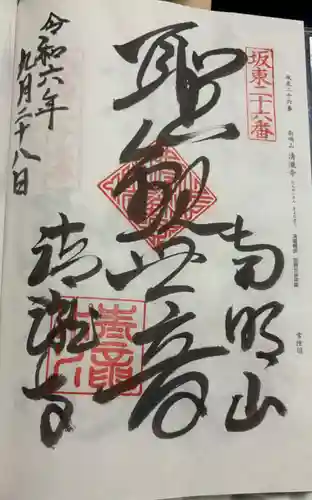 坂東二十六番
南明山 清瀧寺
坂東二十六番
南明山
聖観世音
清瀧寺
令和六年
九月二十八日